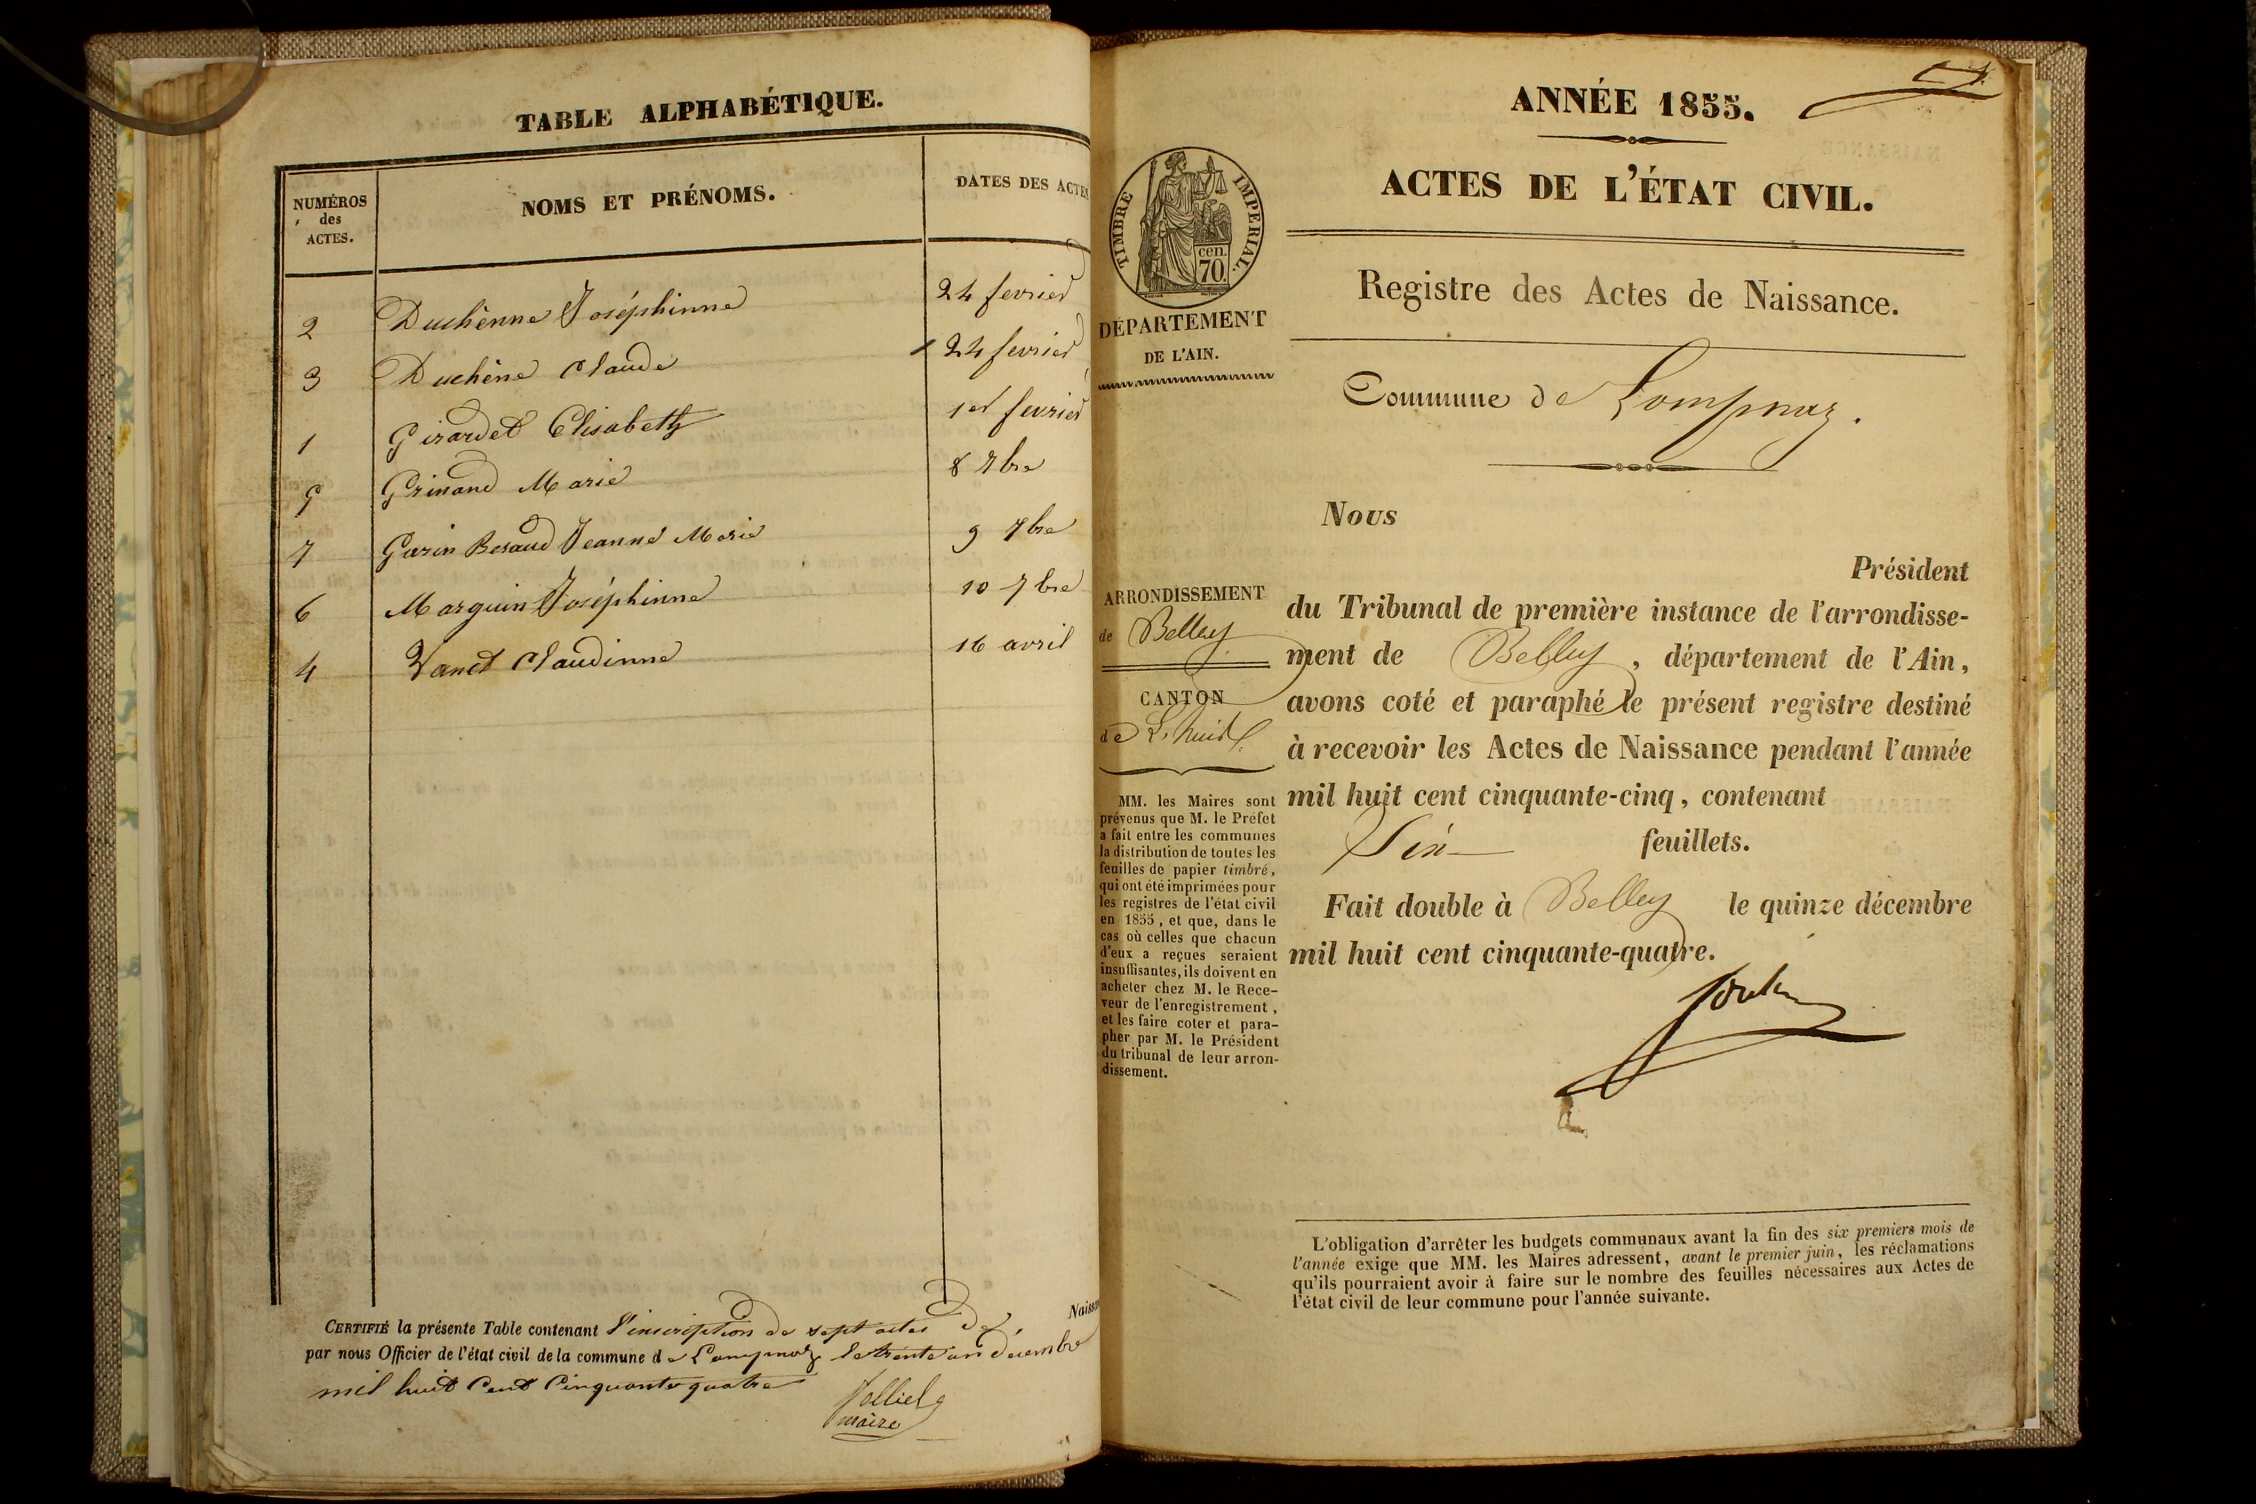 TABLE ALPHABÉTIQUE.
NUMÉROS
des
ACTES.
NOMS ET PRÉNOMS.
DATES DES ACTES
2 Duchènne Joséphinne 24 fevrier
3 Duchène Claude 24 fevrier
1 Girardet Elisabeth 1er fevrier
5 Grinand Marie 8 7bre
7 Gurin Beraud Jeanne Marie 9 7bre
6 Marguin Joséphinne 10 7bre
4 Vanet Claudinne 16 avril
Naiss
CERTIFIÉ la présente Table contenant l'inscription de sept actes de
par nous Officier de l'état civil de la commune de Lompnaz le trente un décembre
mil huit Cent Cinquante quatre
Jolliet
maire
ANNÉE 1855.
ACTES DE L'ÉTAT CIVIL.
Registre des Actes de Naissance.
TIMBRE IMPERIAL.
cen.
70.
DÉPARTEMENT
DE L'AIN.
Commune de Lompnaz.
Nous
Président
du Tribunal de première instance de l'arrondisse-
ment de Belley, département de l'Ain,
avons coté et paraphé le présent registre destiné
à recevoir les Actes de Naissance pendant l'année
mil huit cent cinquante-cinq, contenant
Six feuillets.
Fait double à Belley le quinze décembre
mil huit cent cinquante-quatre.
ARRONDISSEMENT
de Belley
CANTON
de L'huis
MM. les Maires sont
prévenus que M. le Préfet
a fait entre les communes
la distribution de toutes les
feuilles de papier timbré,
qui ont été imprimées pour
les registres de l'état civil
en 1855, et que, dans le
cas où celles que chacun
d'eux a reçues seraient
insuffisantes, ils doivent en
acheter chez M. le Rece-
veur de l'enregistrement,
et les faire coter et para-
pher par M. le Président
du tribunal de leur arron-
dissement.
L'obligation d'arrêter les budgets communaux avant la fin des six premiers mois de
l'année exige que MM. les Maires adressent, avant le premier juin, les réclamations
qu'ils pourraient avoir à faire sur le nombre des feuilles nécessaires aux Actes de
l'état civil de leur commune pour l'année suivante.